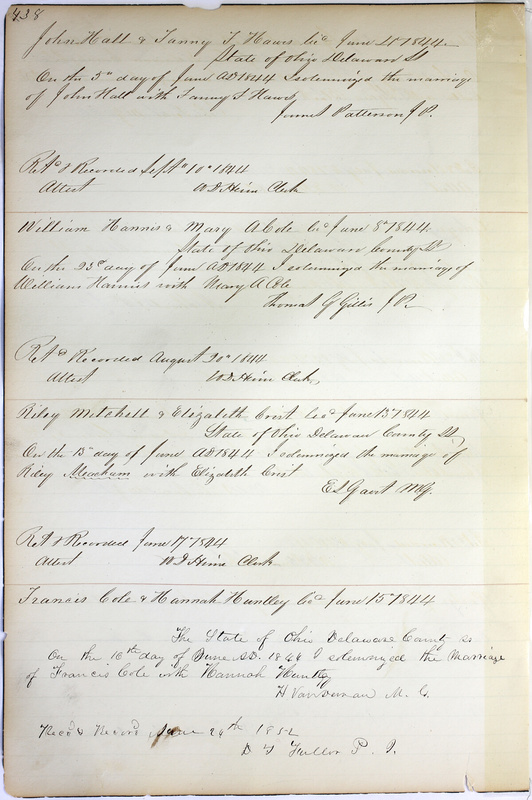 438
John Hall & Fanny F. Haws Lic June 4th 1844
State of Ohio Delaware
On the 5th day of June AD 1844 I solemnized the marriage
of John Hall with Fanny F Haws
Patterson J P.
Ret'd & Recorded Sept 10th 1844
Attest W D Heim Clerk
William Hannis & Mary A Cole Lic June 8th 1844
State of Ohio Delaware County SS
On the 23d day of June AD 1844 I solemnized the marriage of
William Hannis with Mary A Cole
Thomas G Gillis J P.
Ret'd Recorded August 20th 1844
Attest W D Heim Clerk
Riley Mitchell & Elizabeth Crist Lic'd June 13th 1844
State of Ohio Delaware County SS
On the 13th day of June AD 1844 I solemnized the marriage of
Riley Meacham with Elizabeth Crist
E S Gavit MG.
Ret'd & Recorded June 17th 1844
Attest W D Heim Clerk
Francis Cole & Hannah Huntley Lic'd June 15th 1844
The State of Ohio Delaware County ss
On the 16th day of June A.D. 1844 I solemnized the Marriage
of Francis Cole with Hannah Huntley
H Vandeman M. G.
Rec'd & Record June 29th 1852
D T Fuller P. J.